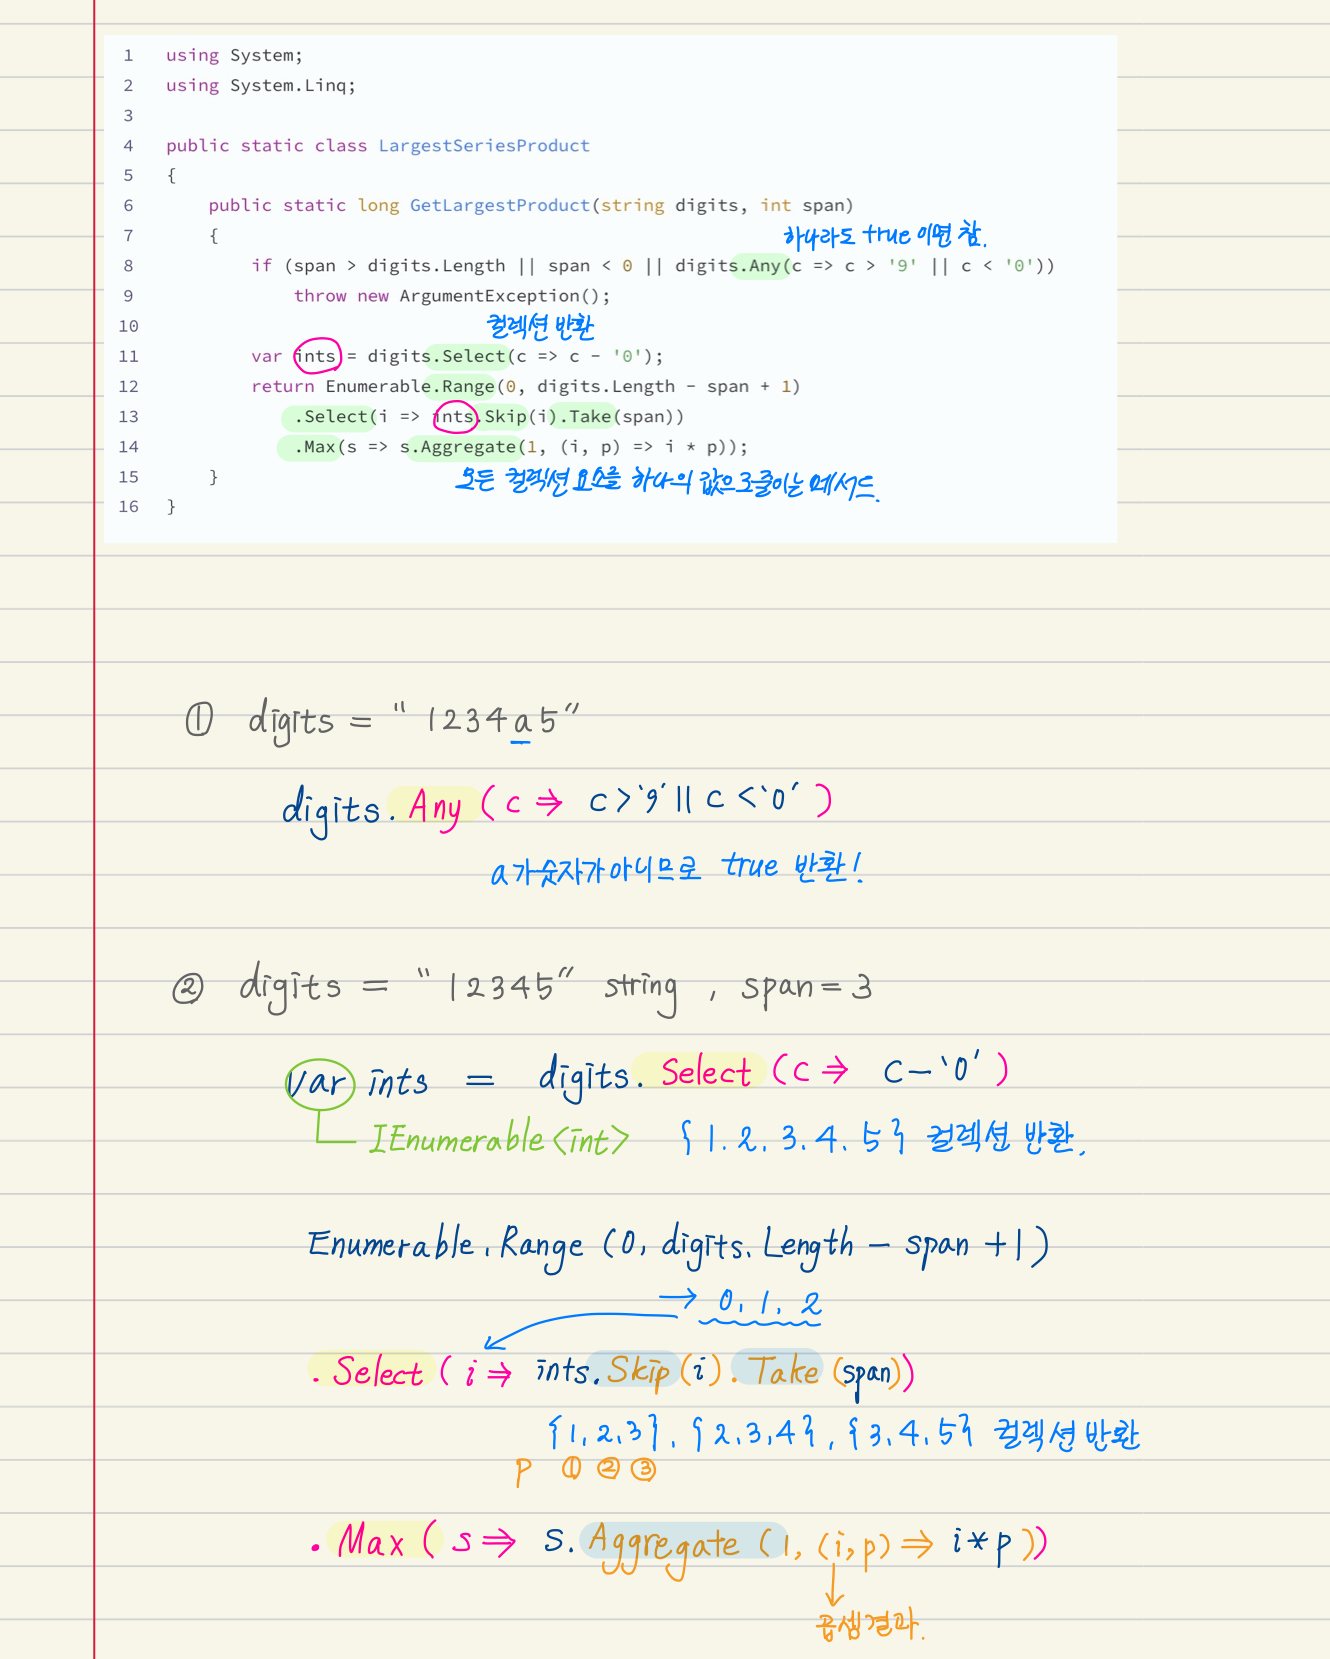 1 using System;
2 using System.Linq;
3
4 public static class LargestSeriesProduct
5 {
6 public static long GetLargestProduct(string digits, int span)
7 {
하나라도 true 이면 참.
8 if (span > digits.Length || span < 0 || digits.Any(c => c > '9' || c < '0'))
9 throw new ArgumentException();
10
컬렉션 반환
11 var ints = digits.Select(c => c - '0');
12 return Enumerable.Range(0, digits.Length - span + 1)
13 .Select(i => ints.Skip(i).Take(span))
14 .Max(s => s.Aggregate(1, (i, p) => i * p));
15 }
모든 컬렉션 요소를 하나의 값으로 줄이는 메서드.
16 }
① digits = "1234a5"
digits.Any(c ⇒ c>'9'||c<'0')
a가 숫자가 아니므로 true 반환!
② digits = "12345" string, span=3
var ints = digits.Select(c ⇒ c-'0')
IEnumerable<int> {1.2.3.4.5} 컬렉션 반환.
Enumerable.Range(0, digits.Length - span +1)
→ 0, 1, 2
.Select(i ⇒ ints.Skip(i).Take(span))
{1,2,3}, {2,3,4}, {3,4,5} 컬렉션 반환
p ① ② ③
.Max(s ⇒ s.Aggregate(1, (i,p) ⇒ i*p))
곱셈결과.